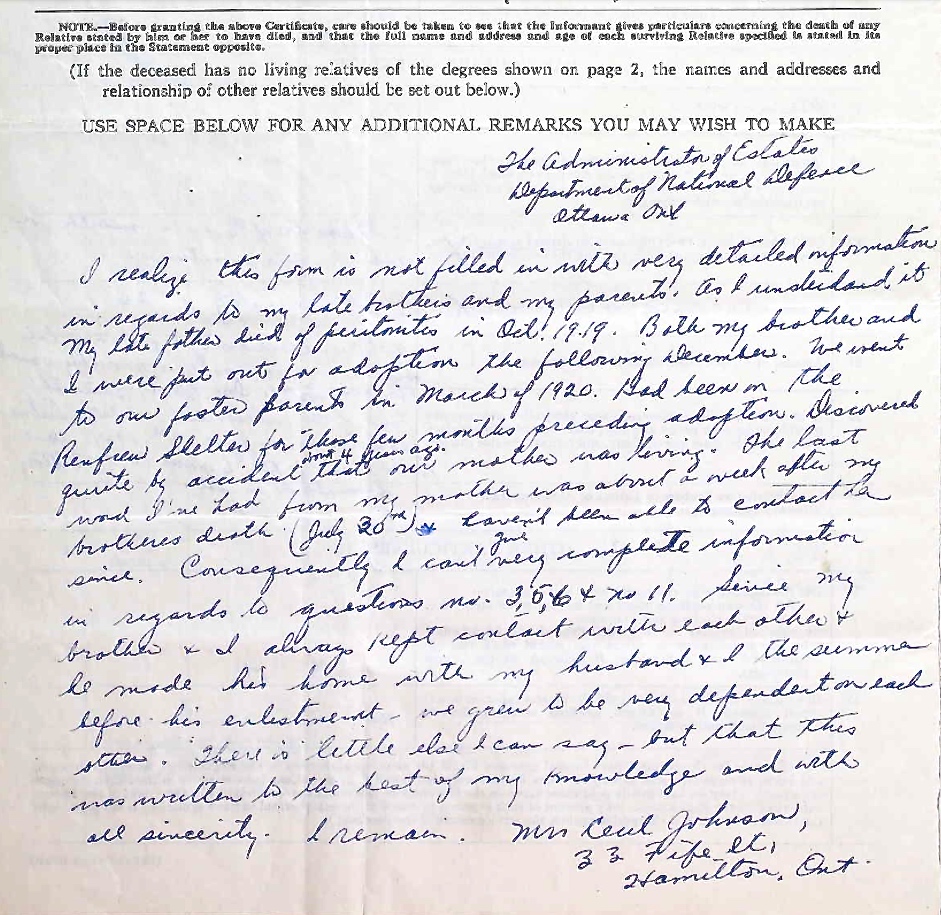 NOTE.—Before granting the above Certificate, care should be taken to see that the Informant gives particulars concerning the death of any
Relative stated by him or her to have died, and that the full name and address and age of each surviving Relative specified is stated in its
proper place in the Statement opposite.
(If the deceased has no living relatives of the degrees shown on page 2, the names and addresses and
relationship of other relatives should be set out below.)
USE SPACE BELOW FOR ANY ADDITIONAL REMARKS YOU MAY WISH TO MAKE
The Administrator of Estates
Department of National Defence
Ottawa Ont
I realize this form is not filled in with very detailed information
in regards to my late brothers and my parents. As I understand it
My late father died of peritonitis in Oct. 1919. Both my brother and
I were put out for adoption the following December. We went
to our foster parents in March of 1920. Had been in the
Renfrew Shelter for those few months preceding adoption. Discovered
about 4 years ago
quite by accident that our mother was living. The last
word I've had from my mother was about a week after my
brotheres death (July 30th) & haven't been able to contact her
give
since. Consequently I can't very complete information
in regards to questions no. 3,5,6 & no 11. Since my
brother & I always kept contact with each other &
he made his home with my husband & I the summer
before his enlistment - we grew to be very dependent on each
other. There is little else I can say - but that this
was written to the best of my knowledge and with
all sincerity. I remain. Mrs Cecil Johnson,
33 Fife St,
Hamilton, Ont.